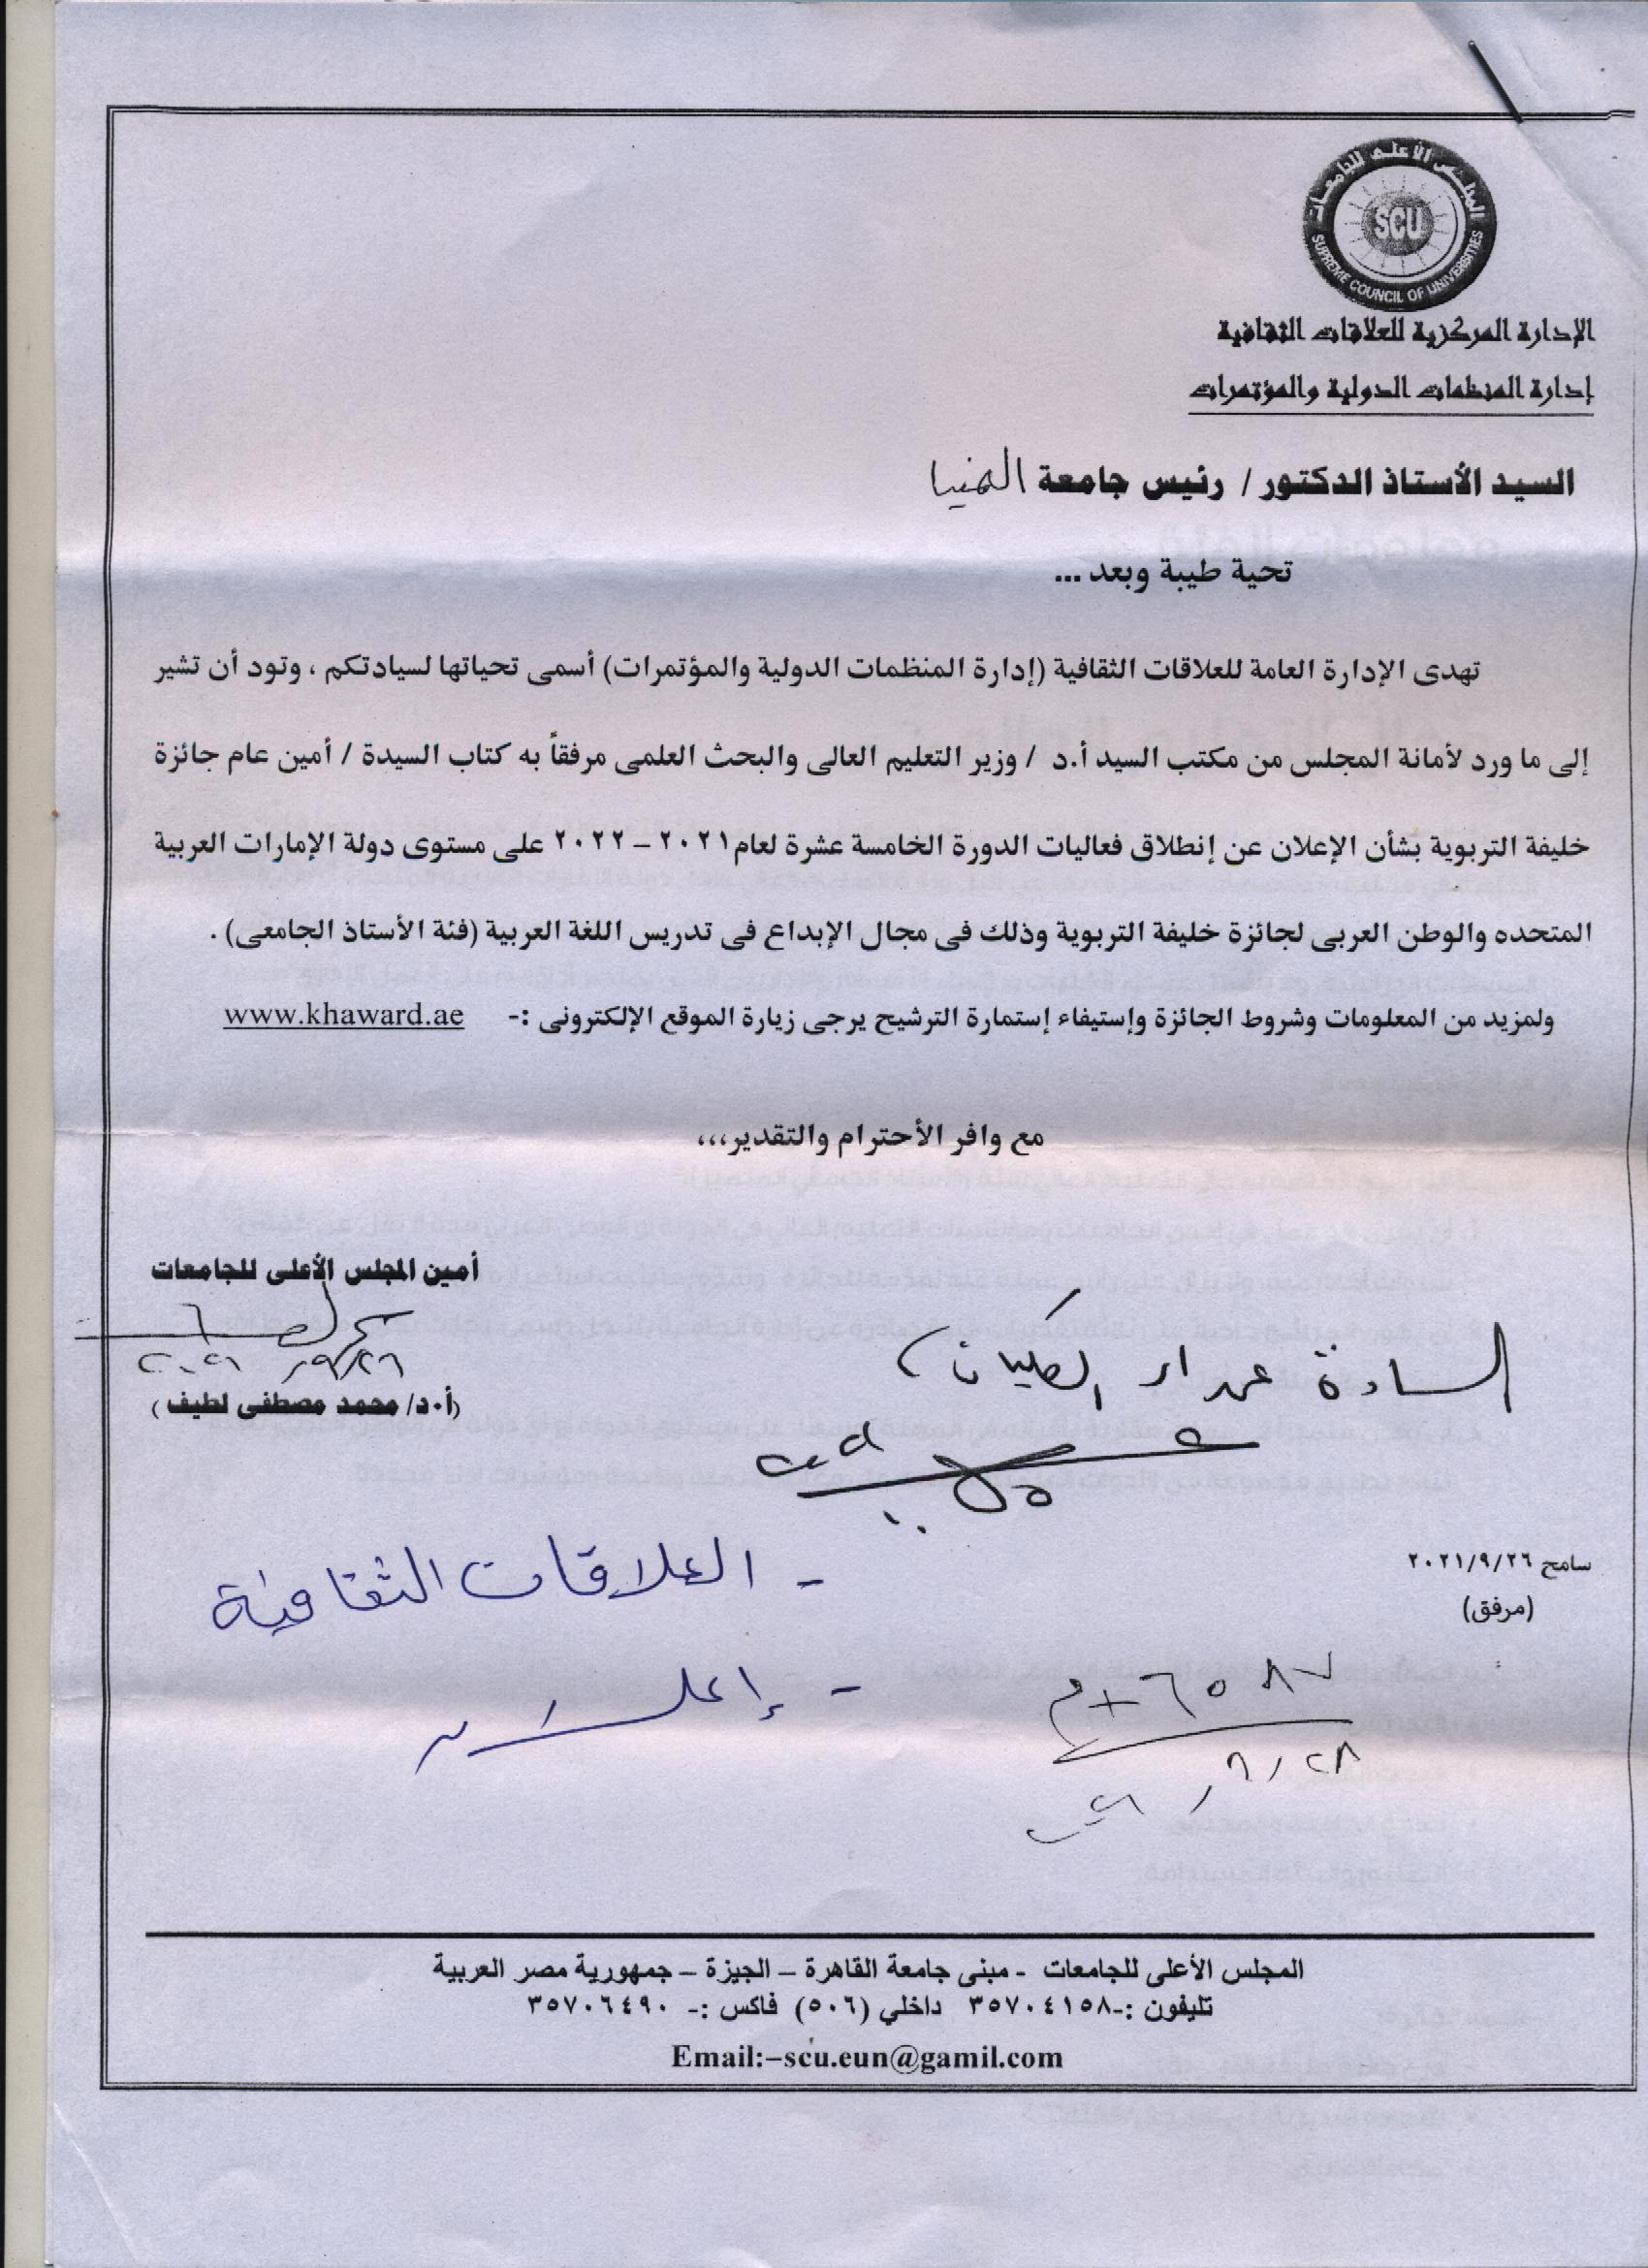 المجلس الأعلى للجامعات
SCU
SUPREME COUNCIL OF UNIVERSITIES
الإدارة المركزية للعلاقات الثقافية
إدارة المنظمات الدولية والمؤتمرات
السيد الأستاذ الدكتور / رئيس جامعة المنيا
تحية طيبة وبعد ...
تهدى الإدارة العامة للعلاقات الثقافية (إدارة المنظمات الدولية والمؤتمرات) أسمى تحياتها لسيادتكم ، وتود أن تشير
إلى ما ورد لأمانة المجلس من مكتب السيد أ.د / وزير التعليم العالى والبحث العلمى مرفقاً به كتاب السيدة / أمين عام جائزة
خليفة التربوية بشأن الإعلان عن إنطلاق فعاليات الدورة الخامسة عشرة لعام ٢٠٢١ – ٢٠٢٢ على مستوى دولة الإمارات العربية
المتحده والوطن العربى لجائزة خليفة التربوية وذلك فى مجال الإبداع فى تدريس اللغة العربية (فئة الأستاذ الجامعى) .
ولمزيد من المعلومات وشروط الجائزة وإستيفاء إستمارة الترشيح يرجى زيارة الموقع الإلكترونى :- www.khaward.ae
مع وافر الأحترام والتقدير،،،
أمين المجلس الأعلى للجامعات
٢٠٢١/٩/٢٦
(أ.د/ محمد مصطفى لطيف )
السادة عمداء الكليات
- العلاقات الثقافية
سامح ٢٠٢١/٩/٢٦
(مرفق)
٩/٢٨
المجلس الأعلى للجامعات - مبنى جامعة القاهرة – الجيزة – جمهورية مصر العربية
تليفون :-٣٥٧٠٤١٥٨ داخلي (٥٠٦) فاكس :- ٣٥٧٠٦٤٩٠
Email:–scu.eun@gamil.com